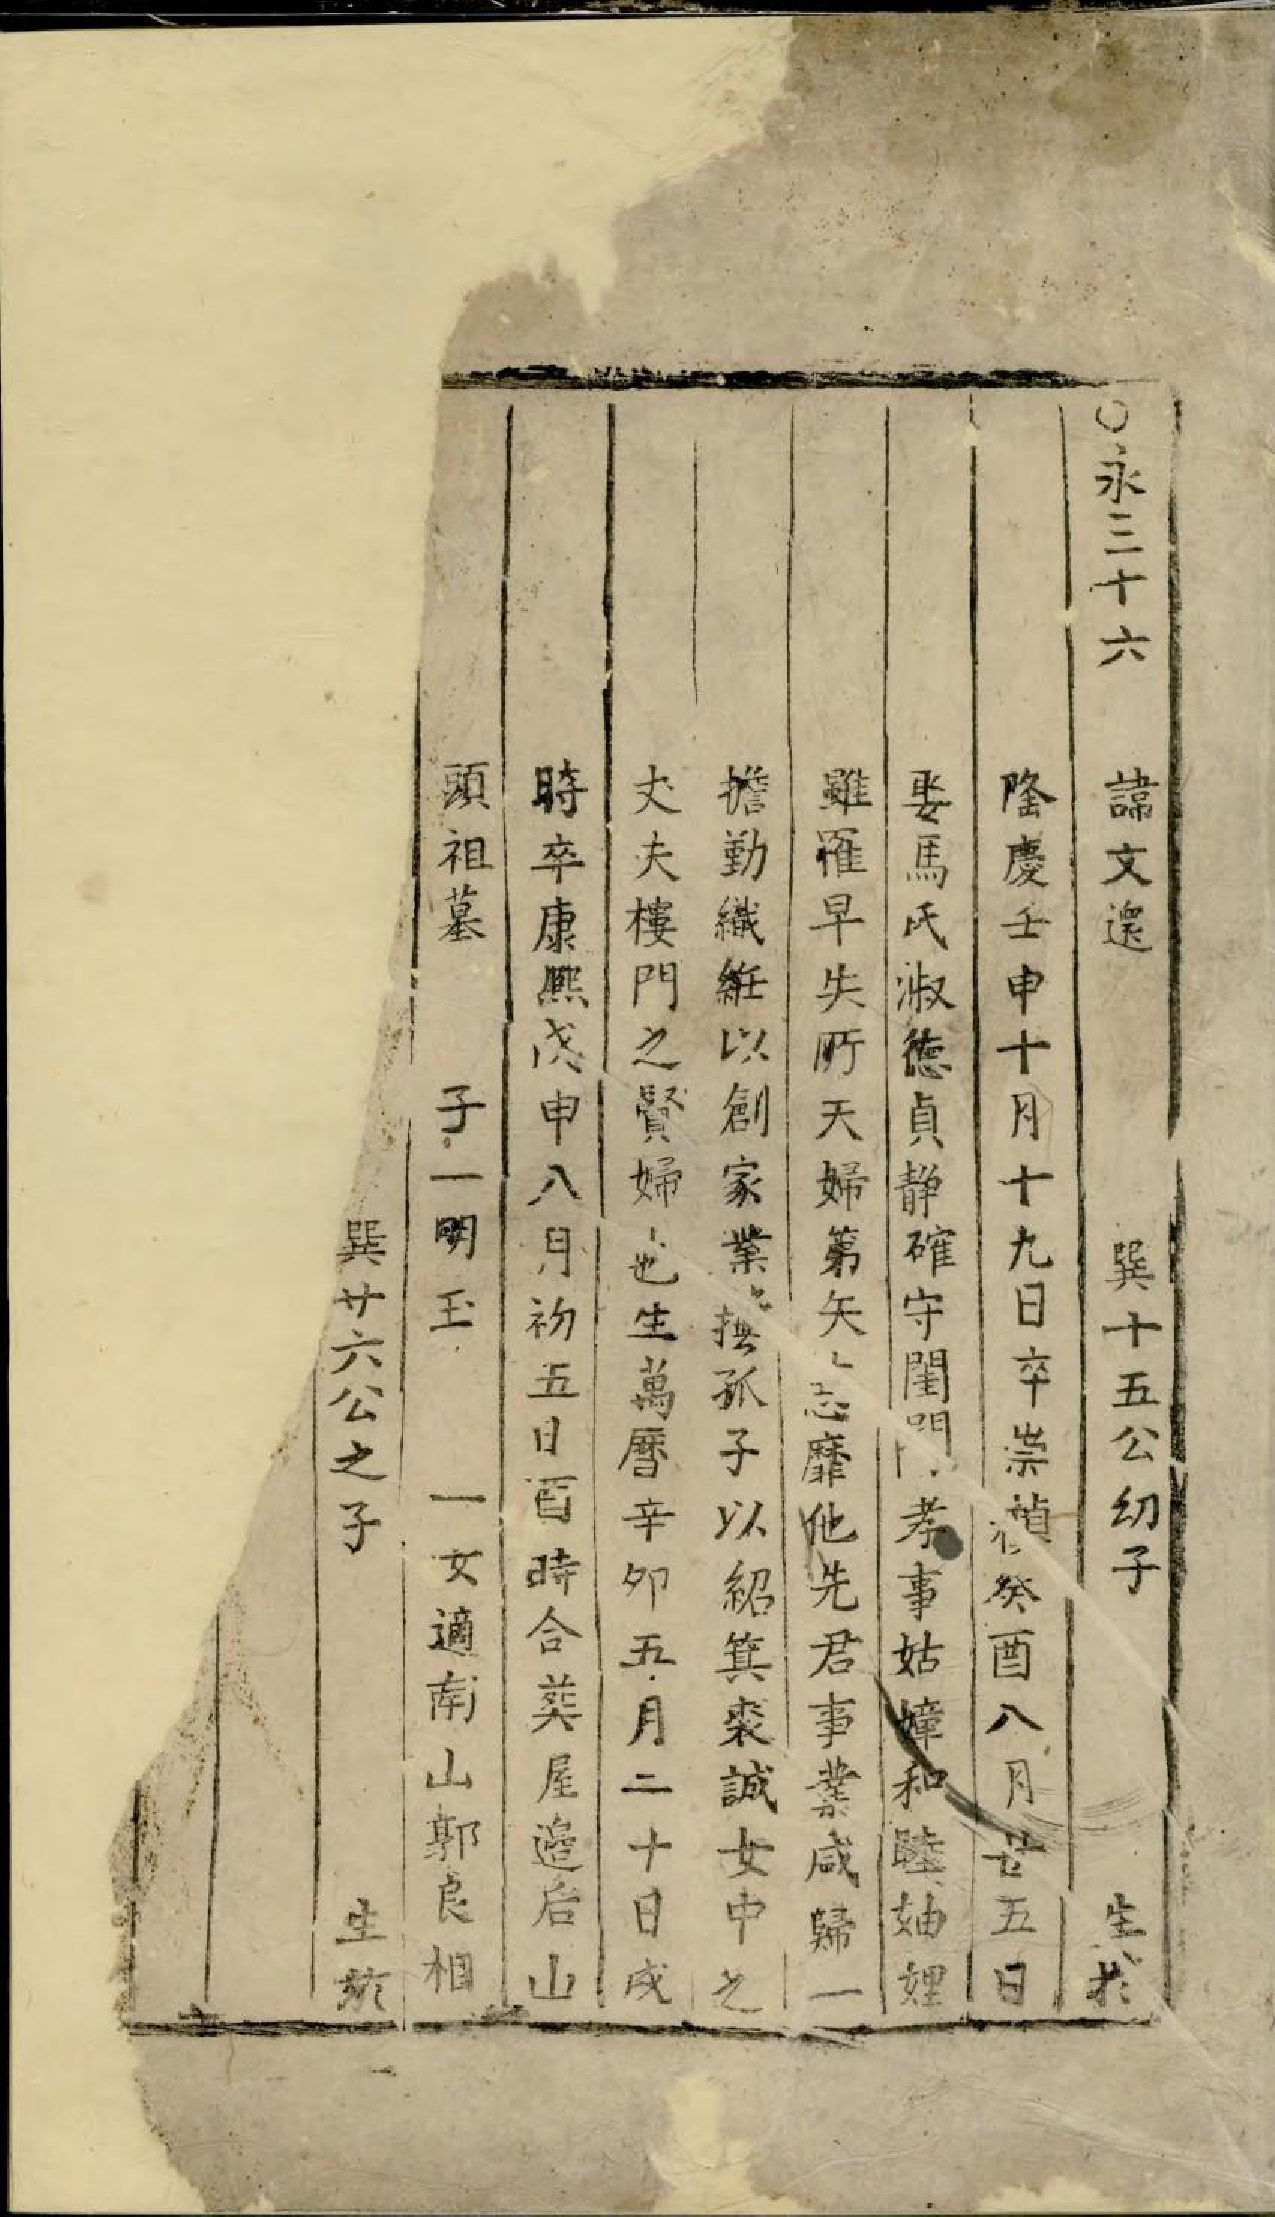 〇永三十六 諱文還 巽十五公幼子 生於
隆慶壬申十月十九日卒崇禎癸酉八月廿五日
娶馬氏淑德貞静確守閨門孝事姑嫜和睦妯娌
雖罹早失所天婦第矢志靡他先君事業咸歸一
擔勤織絍以創家業撫孤子以紹箕裘誠女中之
丈夫樓門之賢婦也生萬曆辛夘五月二十日戌
時卒康熈戊申八月初五日酉時合葬屋邉后山
頭祖墓 子一明玉 一女適南山郭良相
巽廿六公之子 生於